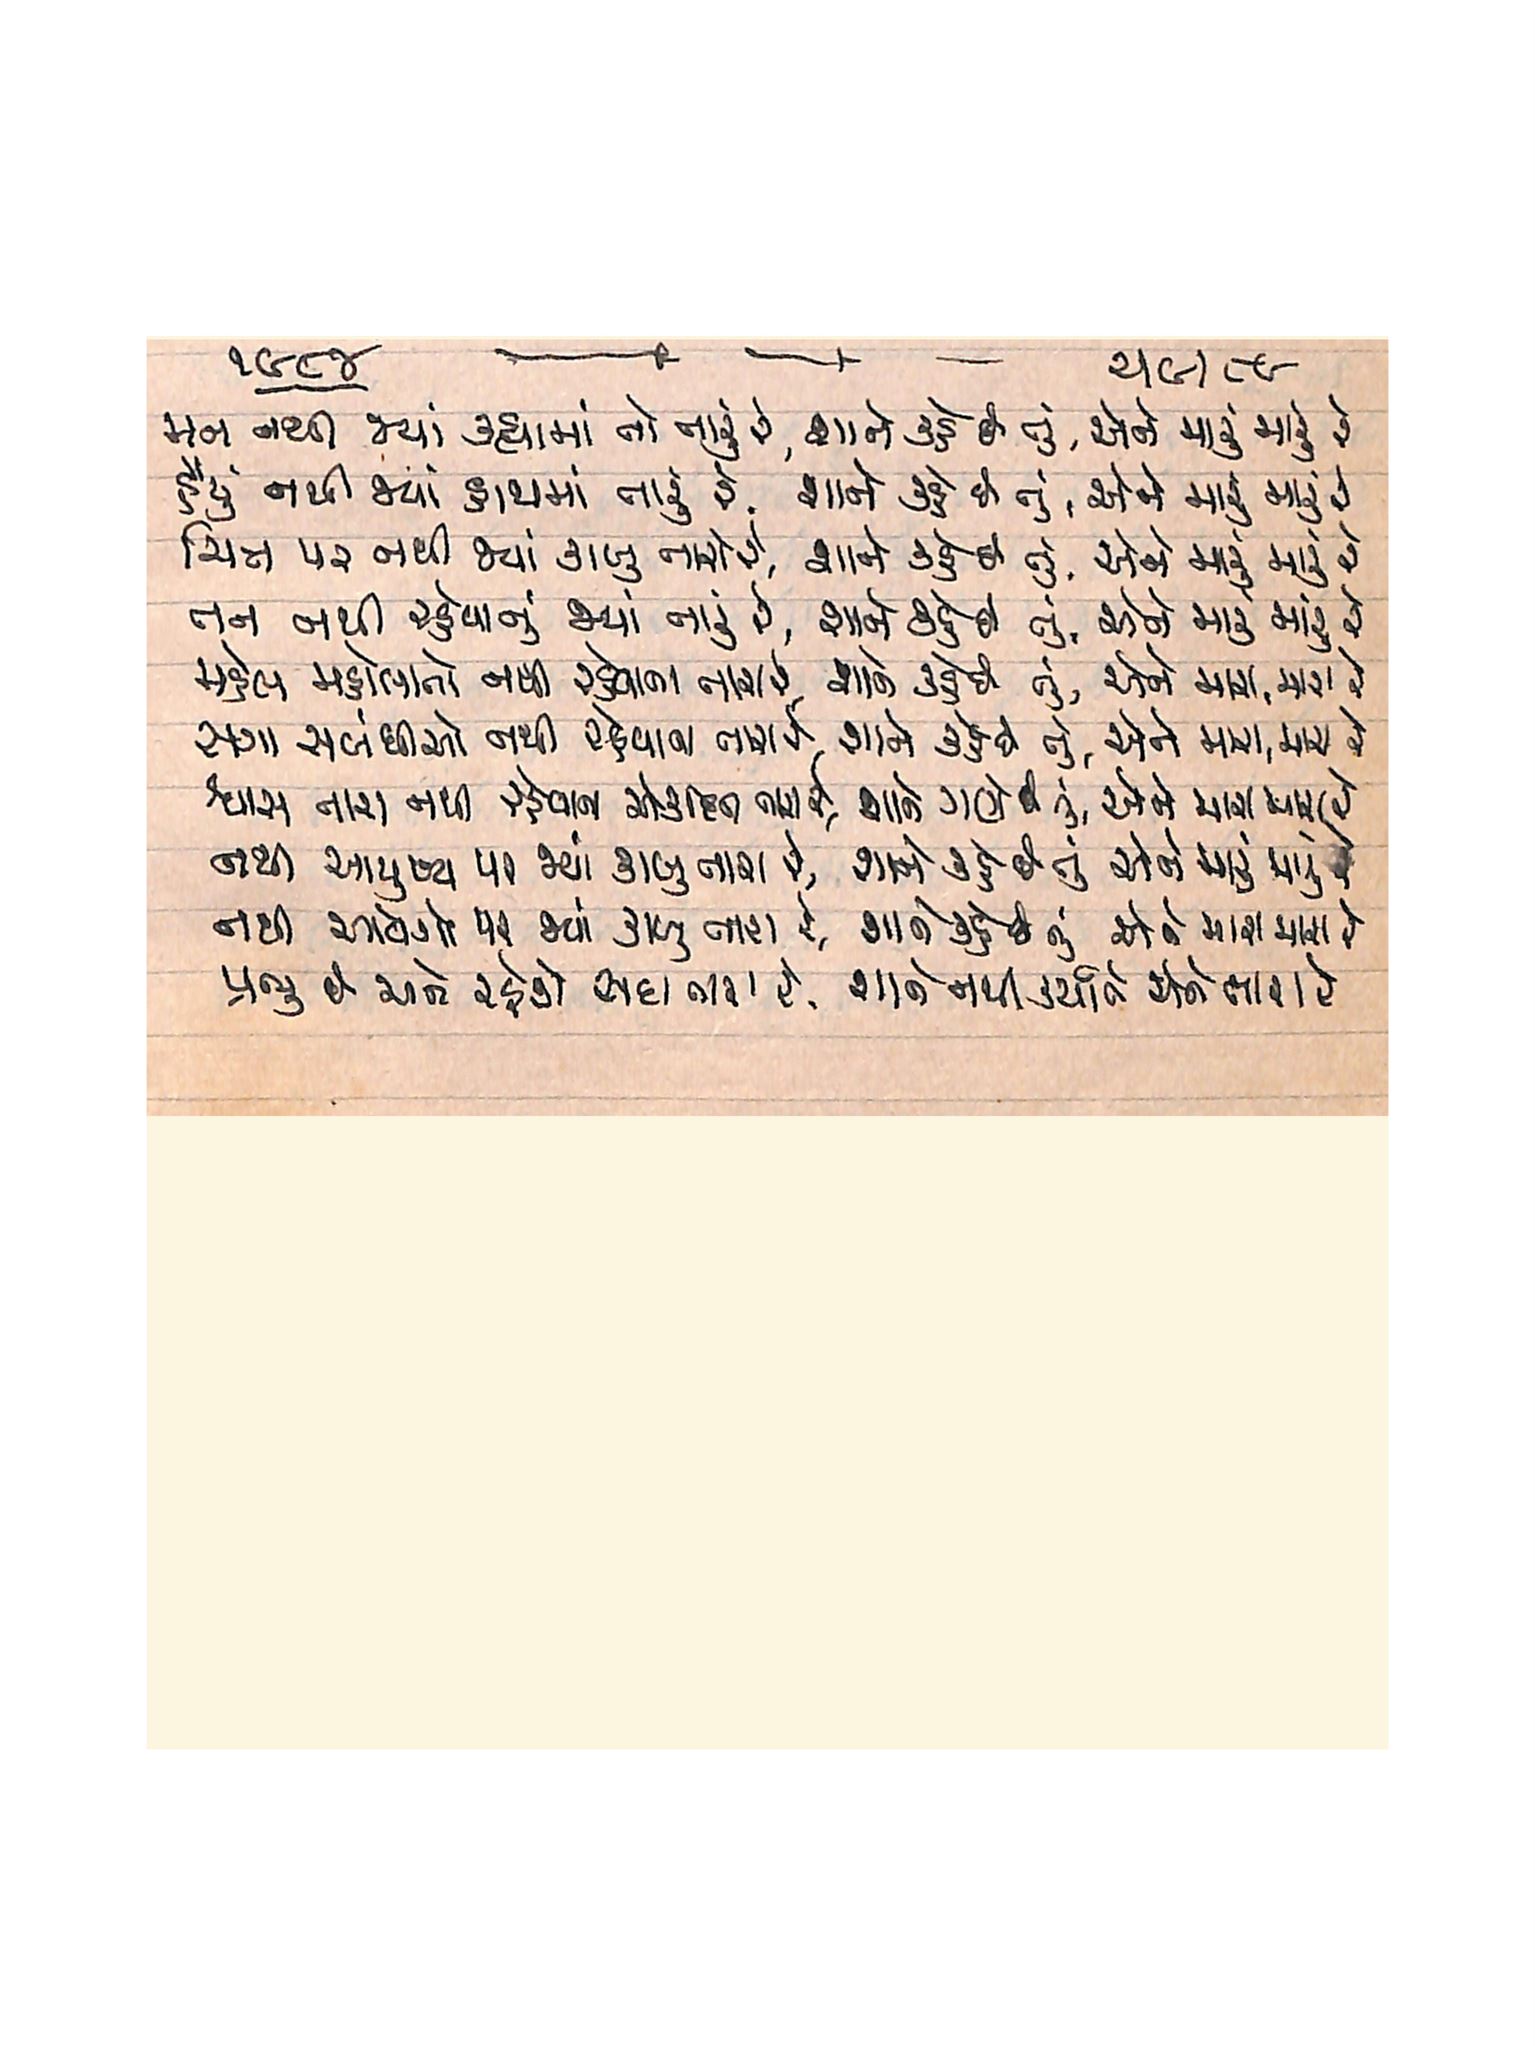 ૧૯૯૪
મન નથી જ્યાં કહ્યામાં તો તારું રે, શાને કહે છે તું, એને મારું મારું રે
હૈયું નથી જ્યાં હાથમાં તારું રે, શાને કહે છે તું, એને મારું મારું રે
ચિત્ત પર નથી જ્યાં કાબુ તારો રે, શાને કહે છે તું, એને મારું મારું રે
તન નથી રહેવાનું જ્યાં તારું રે, શાને કહે છે તું, એને મારું મારું રે
મહેલ મહોલાતો નથી રહેવાના તારા રે, શાને કહે છે તું, એને મારા, મારા રે
સગા સબંધીઓ નથી રહેવાના તારા રે, શાને કહે છે તું, એને મારા, મારા રે
શ્વાસ તારા નથી રહેવાના તારા રે, શાને ગણે છે તું, એને મારા મારા રે
નથી આયુષ્ય પર જ્યાં કાબુ તારા રે, શાને કહે છે તું એને મારું મારું રે
નથી આવેગો પર જ્યાં કાબુ તારા રે, શાને કહે છે તું એને મારા મારા રે
પ્રભુ છે અને રહેશે સદા તારા રે, શાને નથી કર્યા તેં એને તારા રે